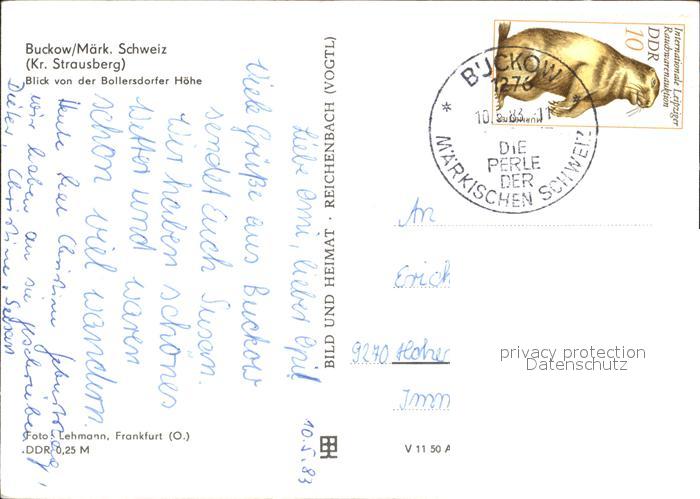 Buckow/Märk. Schweiz
(Kr. Strausberg)
Blick von der Bollersdorfer Höhe
10.5.83
Liebe Omi, lieber Opi!
Viele Grüße aus Buckow
sendet Euch Susan.
Wir haben schönes
Wetter und waren
schon viel wandern.
Heute hat Christine Geburtstag,
wir haben an sie geschrieben.
Dieter, Christine, Susan
Foto: Lehmann, Frankfurt (O.)
DDR 0,25 M
BILD UND HEIMAT · REICHENBACH (VOGTL)
V 11 50 A
Internationale Leipziger
Rauchwarenauktion
DDR
10
BUCKOW
1276
DIE
PERLE
DER
MÄRKISCHEN SCHWEIZ
An
Erich
9270 Hohen
Imm
privacy protection
Datenschutz